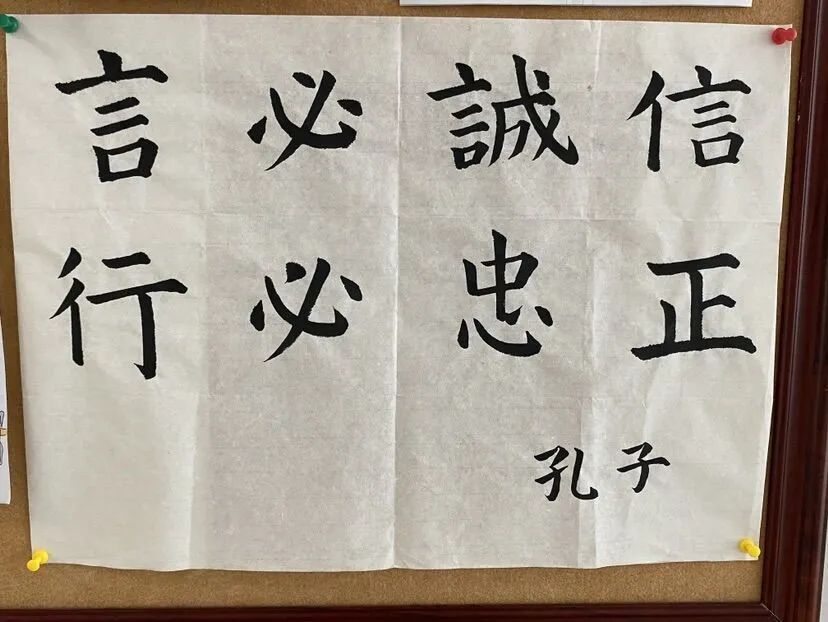 言必誠信
行必忠正
孔子